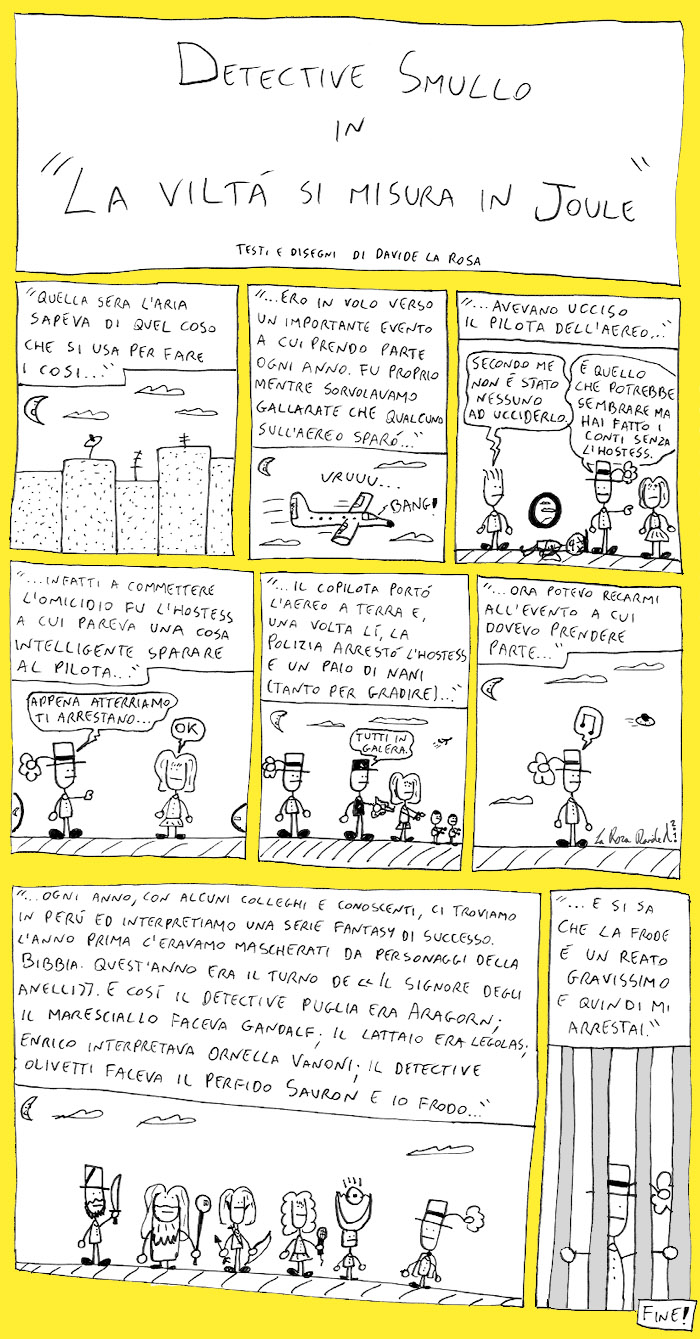 DETECTIVE SMULLO
IN
"LA VILTÁ SI MISURA IN JOULE"
TESTI E DISEGNI DI DAVIDE LA ROSA
"QUELLA SERA L'ARIA
SAPEVA DI QUEL COSO
CHE SI USA PER FARE
I COSI..."
"...ERO IN VOLO VERSO
UN IMPORTANTE EVENTO
A CUI PRENDO PARTE
OGNI ANNO. FU PROPRIO
MENTRE SORVOLAVAMO
GALLARATE CHE QUALCUNO
SULL'AEREO SPARÓ..."
VRUUU...
BANG!
"...AVEVANO UCCISO
IL PILOTA DELL'AEREO..."
SECONDO ME
NON É STATO
NESSUNO
AD UCCIDERLO.
É QUELLO
CHE POTREBBE
SEMBRARE MA
HAI FATTO I
CONTI SENZA
L'HOSTESS.
"...INFATTI A COMMETTERE
L'OMICIDIO FU L'HOSTESS
A CUI PAREVA UNA COSA
INTELLIGENTE SPARARE
AL PILOTA..."
APPENA ATTERRIAMO
TI ARRESTANO...
OK
"...IL COPILOTA PORTÓ
L'AEREO A TERRA E,
UNA VOLTA LÍ, LA
POLIZIA ARRESTÓ L'HOSTESS
E UN PAIO DI NANI
(TANTO PER GRADIRE)..."
TUTTI IN
GALERA.
"...ORA POTEVO RECARMI
ALL'EVENTO A CUI
DOVEVO PRENDERE
PARTE..."
La Rosa Davide
"...OGNI ANNO, CON ALCUNI COLLEGHI E CONOSCENTI, CI TROVIAMO
IN PERÚ ED INTERPRETIAMO UNA SERIE FANTASY DI SUCCESSO.
L'ANNO PRIMA C'ERAVAMO MASCHERATI DA PERSONAGGI DELLA
BIBBIA. QUEST'ANNO ERA IL TURNO DE "IL SIGNORE DEGLI
ANELLI". E COSÍ IL DETECTIVE PUGLIA ERA ARAGORN;
IL MARESCIALLO FACEVA GANDALF; IL LATTAIO ERA LEGOLAS;
ENRICO INTERPRETAVA ORNELLA VANONI; IL DETECTIVE
OLIVETTI FACEVA IL PERFIDO SAURON E IO FRODO..."
"...E SI SA
CHE LA FRODE
É UN REATO
GRAVISSIMO
E QUINDI MI
ARRESTAI."
FINE!